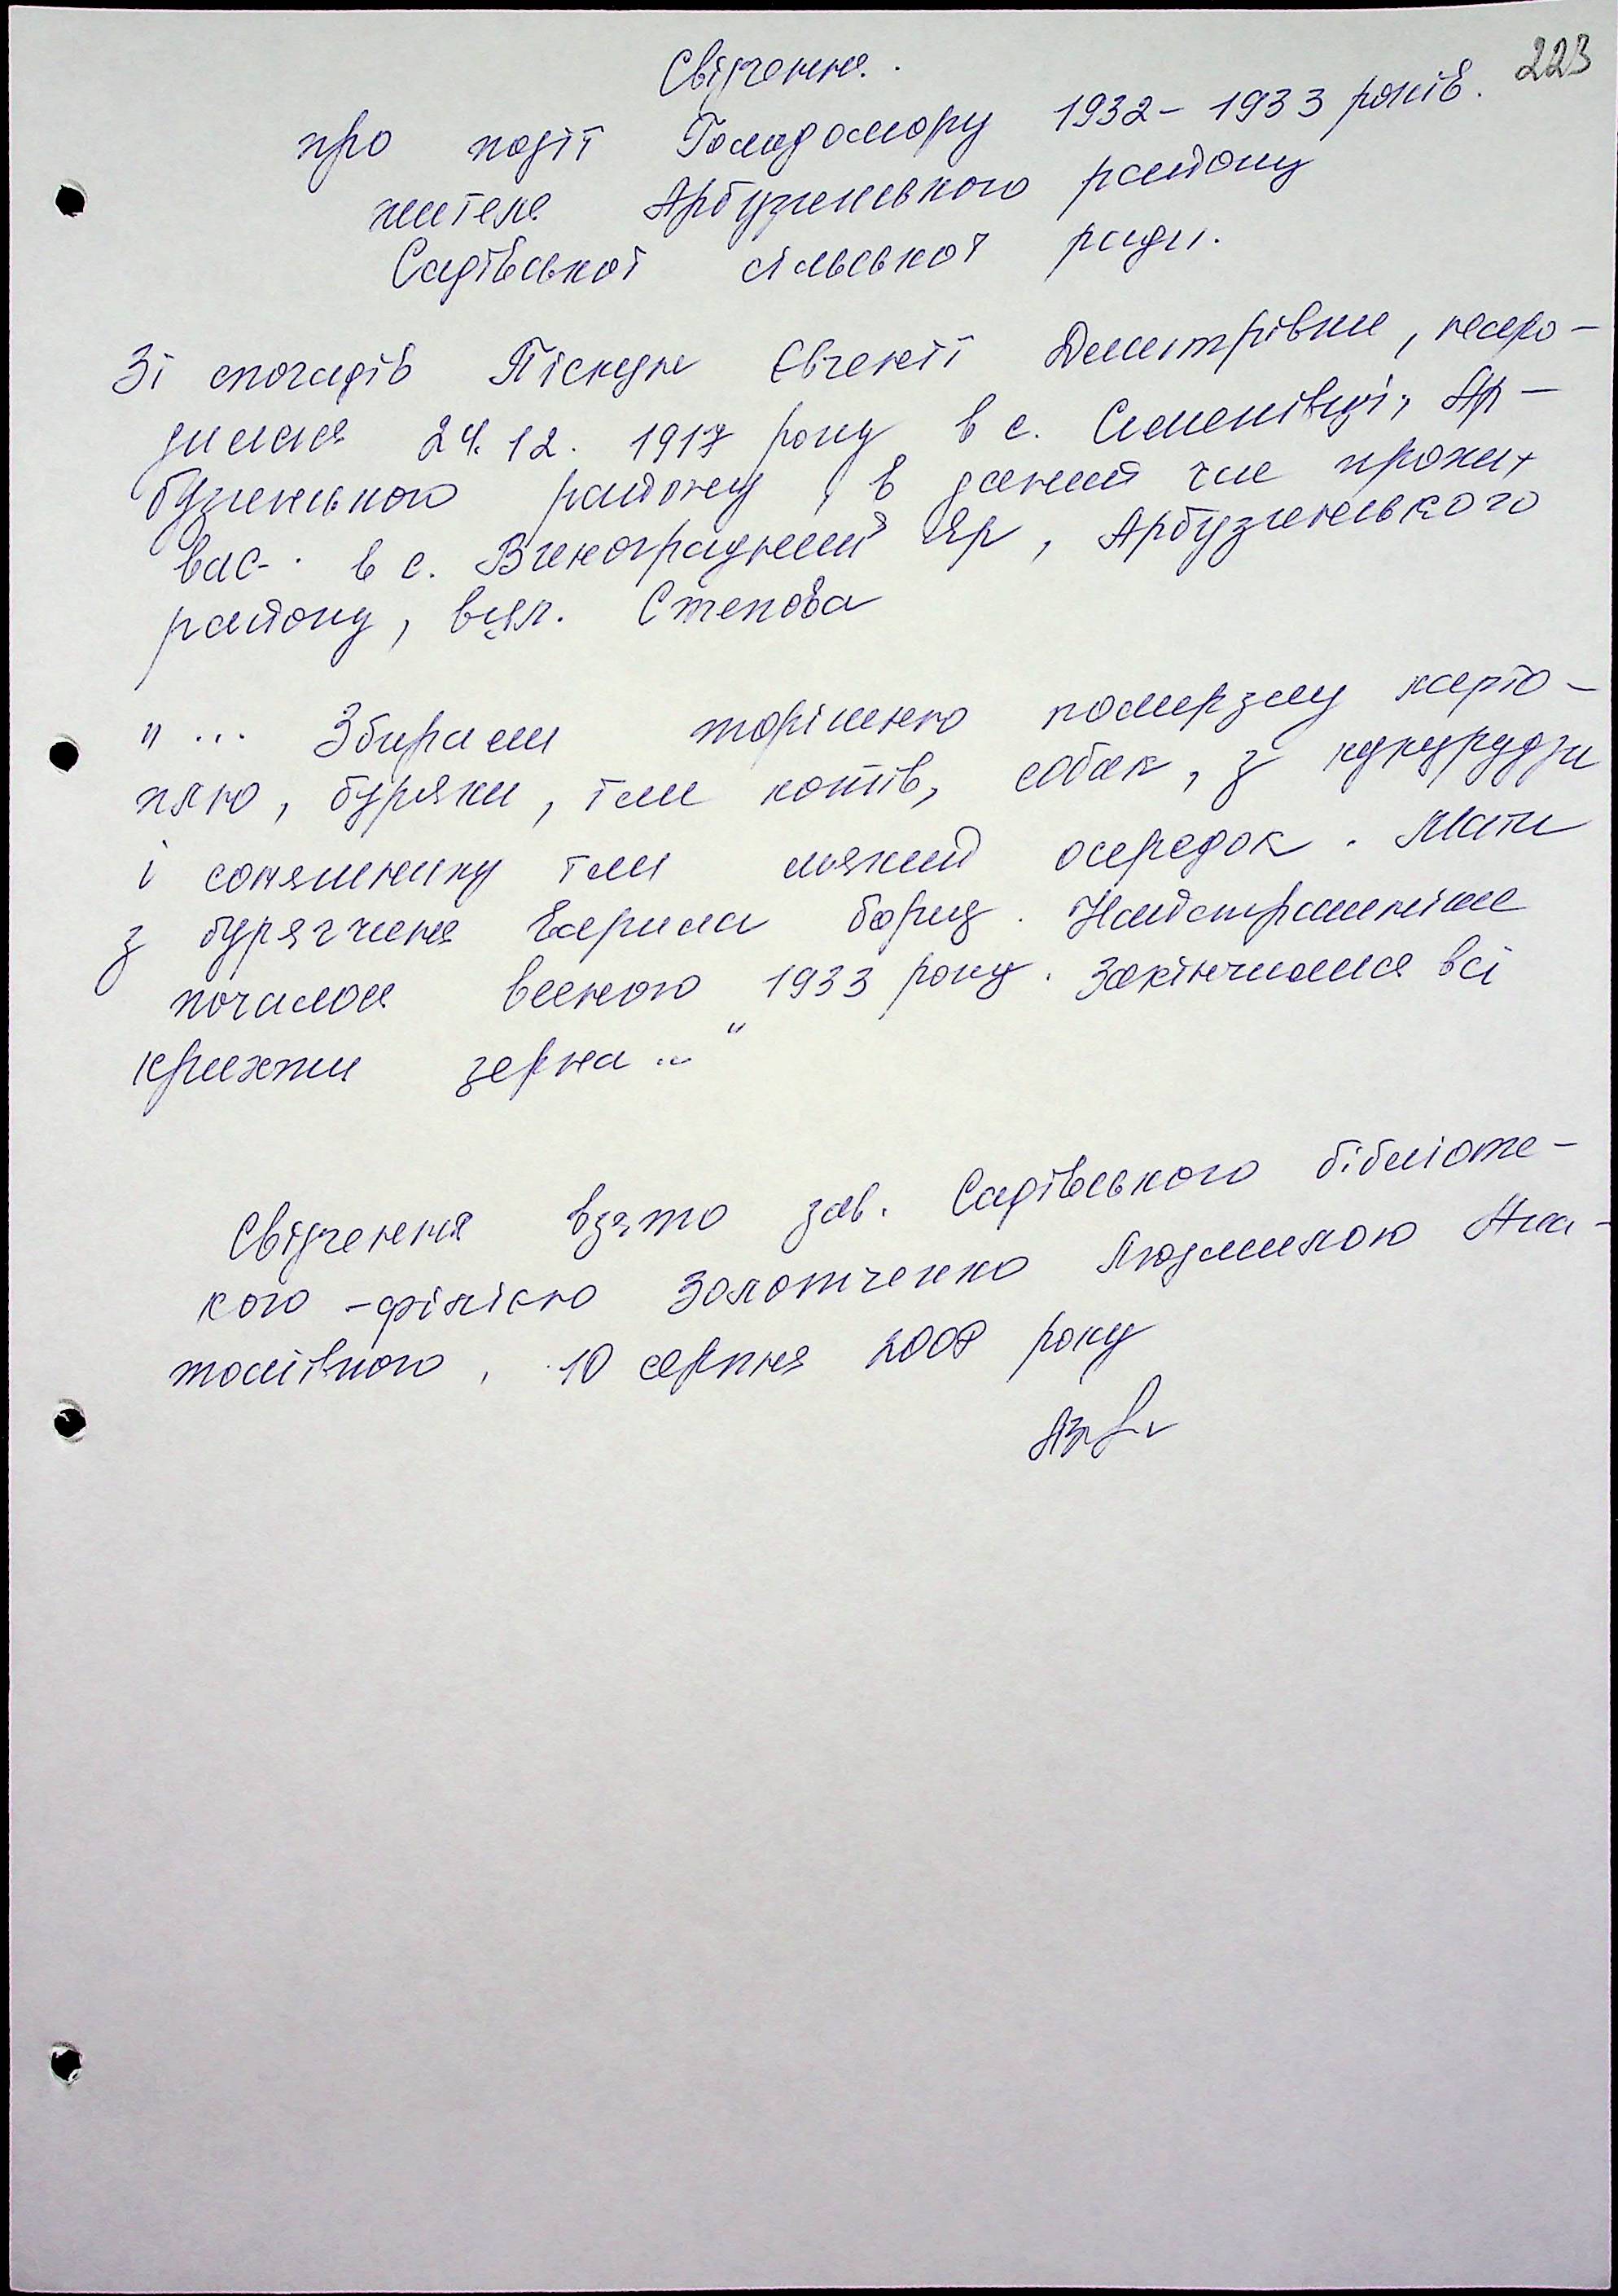 223
Свідчення.
про події Голодомору 1932-1933 років.
жителя Арбузинського району
Садівської сільської ради.
Зі спогадів Піскун Євгенії Дмитрівни, наро-
дилася 24.12.1917 року в с. Семенівці, Ар-
бузинського району, в даний час прожи-
ває в с. Виноградний Яр, Арбузинського
району, вул. Степова
"... Збирали торішню померзлу карто-
плю, буряки, їли котів, собак, з кукурудзи
і соняшнику їли мякий осередок. Мати
з бурячиня варила борщ. Найстрашніше
почалося весною 1933 року. Закінчилися всі
крихти зерна..."
Свідчення взято зав. Садівського бібліоте-
кою-філією Золотченко Людмилою Ана-
толіївною, 10 серпня 2008 року